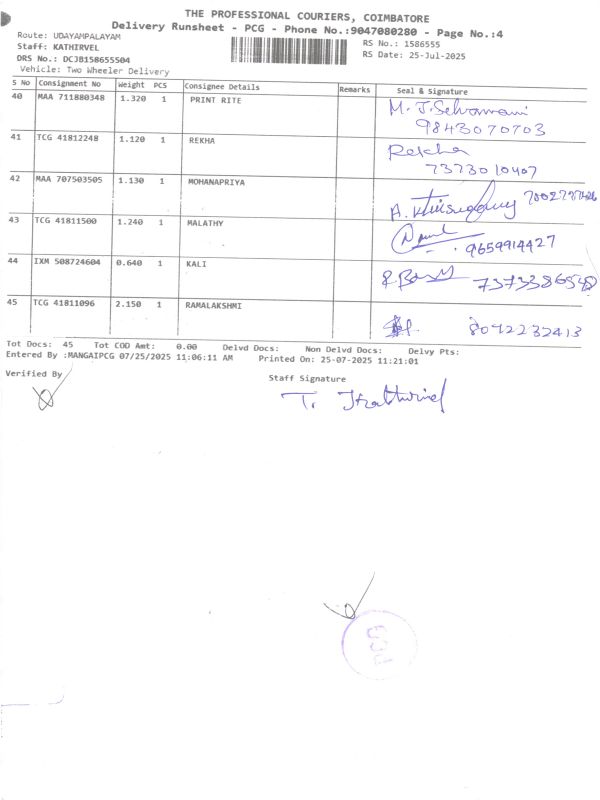 THE PROFESSIONAL COURIERS, COIMBATORE
Delivery Runsheet - PCG - Phone No.:9047080280 - Page No.:4
Route: UDAYAMPALAYAM
Staff: KATHIRVEL
DRS No.: DCJB158655504
Vehicle: Two Wheeler Delivery
RS No.: 1586555
RS Date: 25-Jul-2025
S No Consignment No Weight PCS Consignee Details Remarks Seal & Signature
40 MAA 711880348 1.320 1 PRINT RITE M. J. Selvamani
9843070703
41 TCG 41812248 1.120 1 REKHA Rekha
7373010407
42 MAA 707503505 1.130 1 MOHANAPRIYA
43 TCG 41811500 1.240 1 MALATHY
9659914427
44 IXM 508724604 0.640 1 KALI
45 TCG 41811096 2.150 1 RAMALAKSHMI
8072232413
Tot Docs: 45 Tot COD Amt: 0.00 Delvd Docs: Non Delvd Docs: Delvy Pts:
Entered By :MANGAIPCG 07/25/2025 11:06:11 AM Printed On: 25-07-2025 11:21:01
Verified By
Staff Signature
PCG